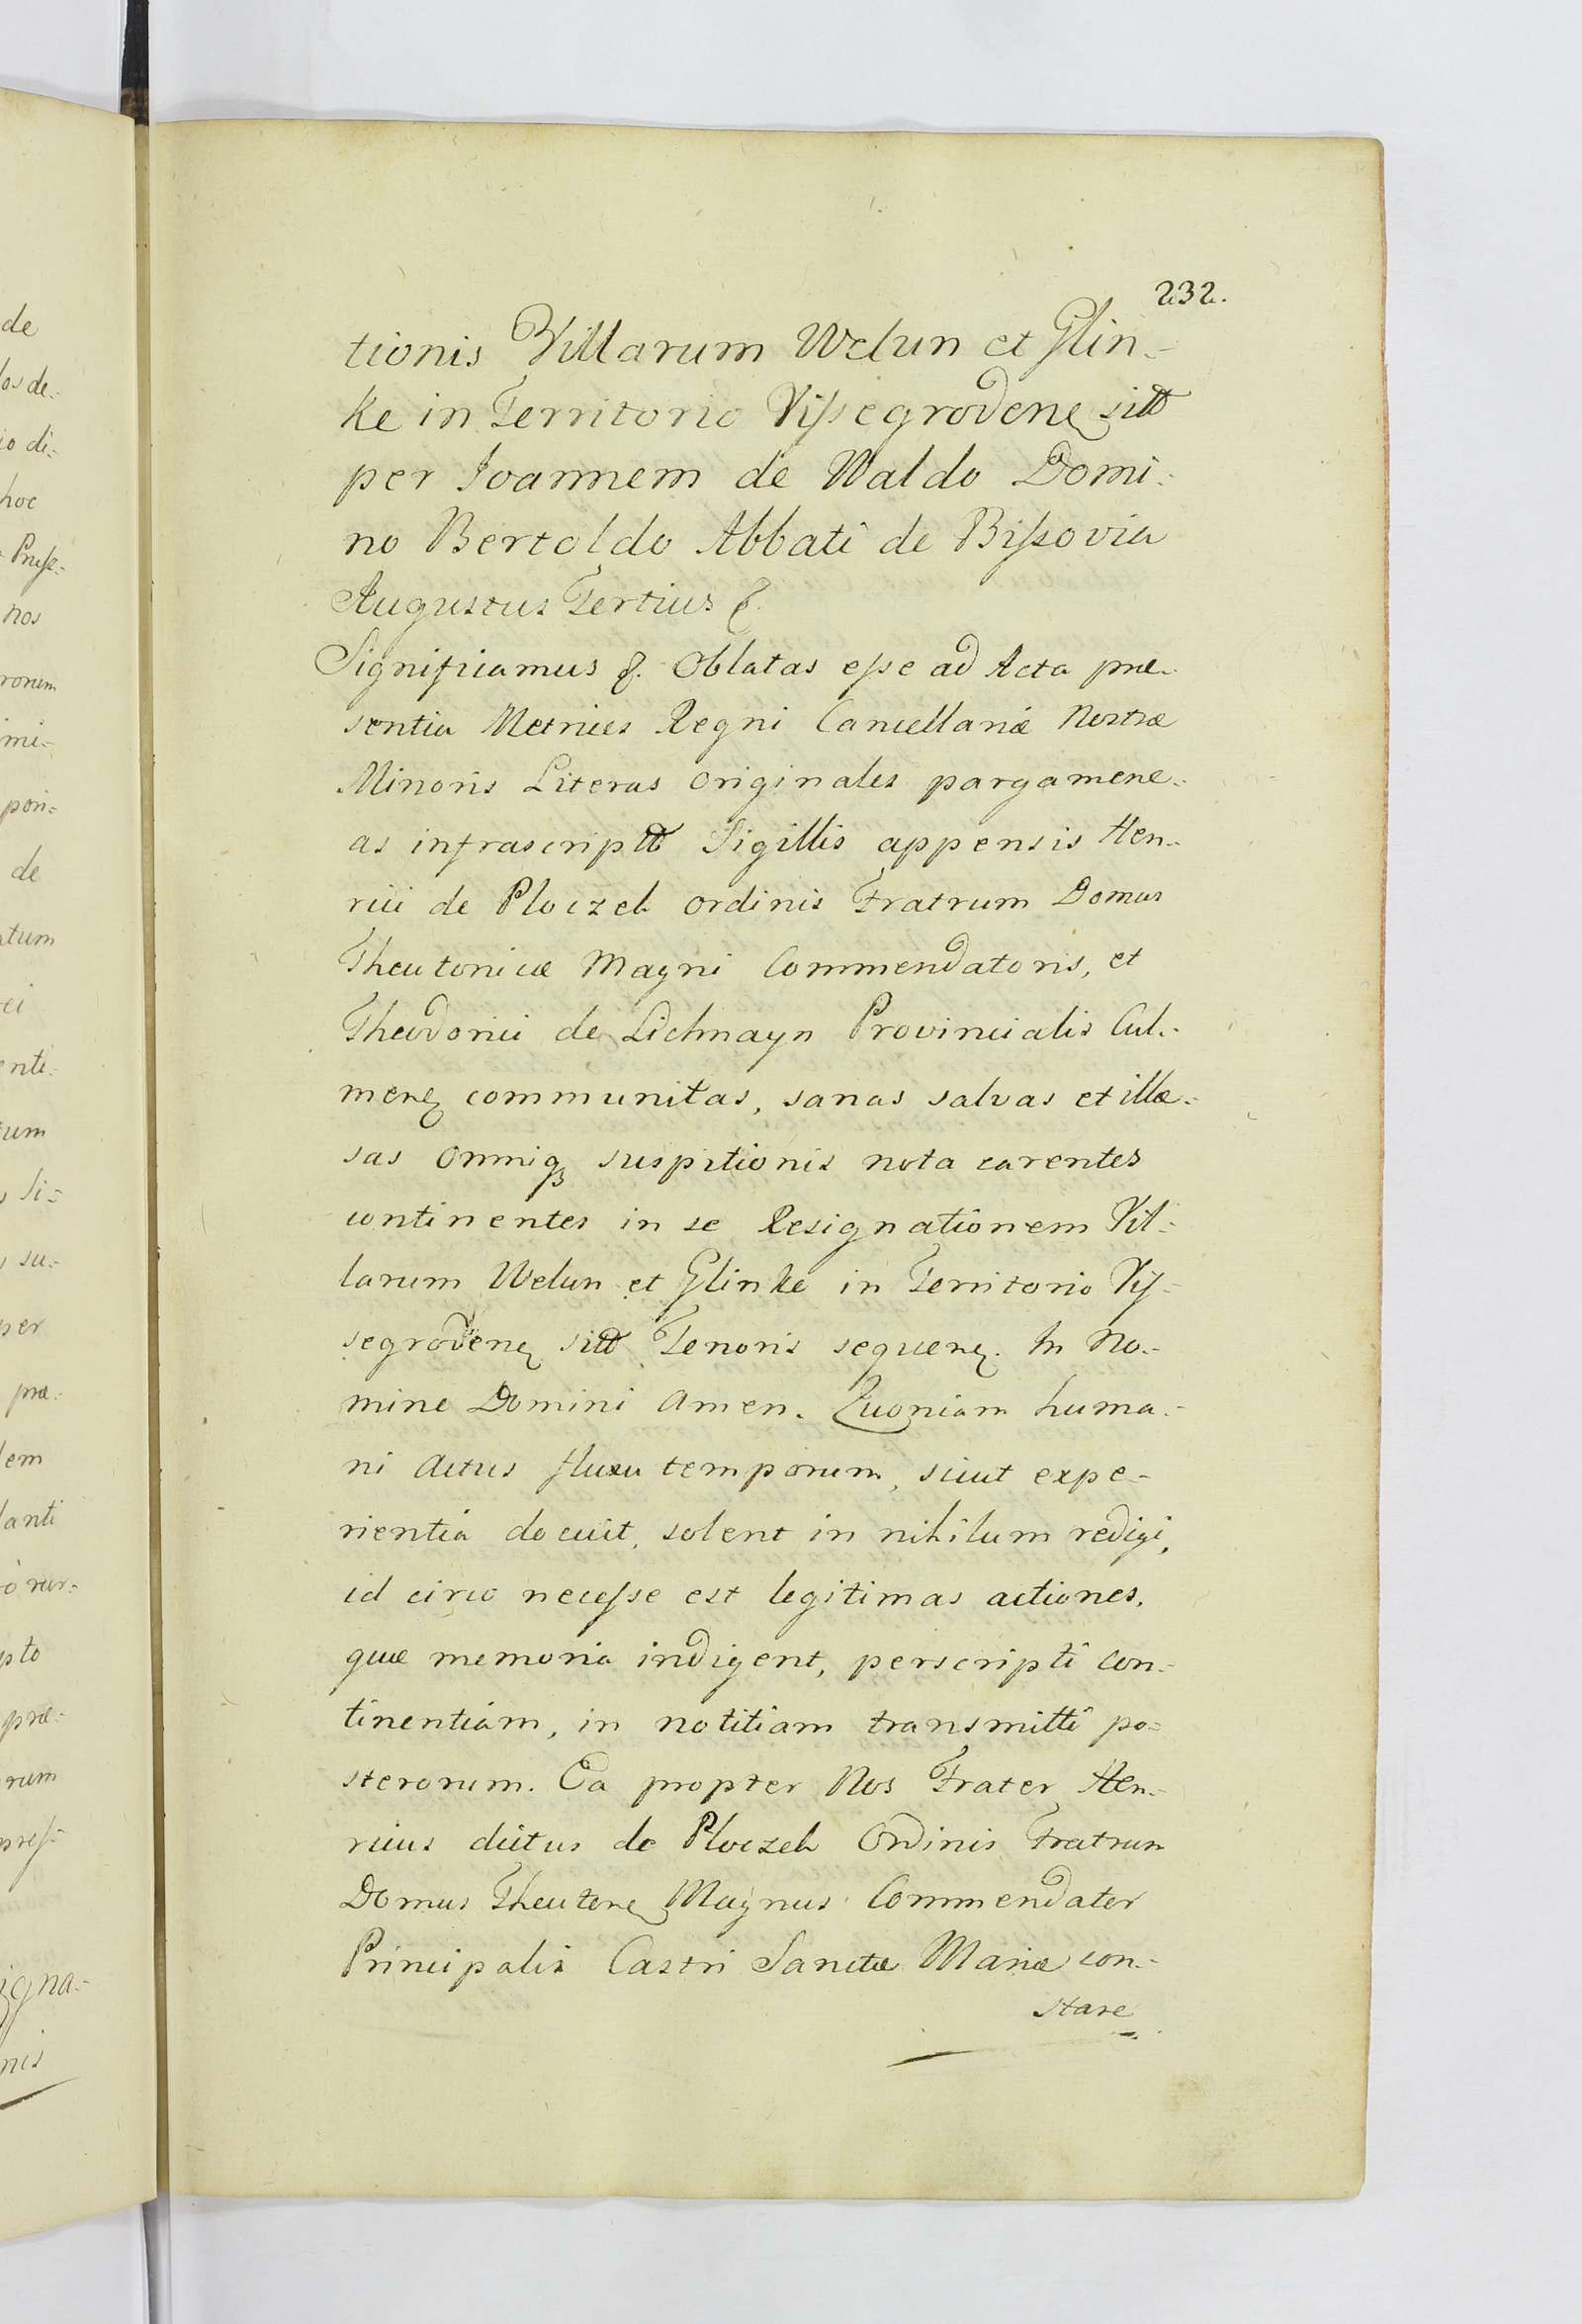 232.
tionis Villarum Welun et Glin-
ke in Territorio Vissegrodenȩ sitt
per Ioannem de Waldo Domi-
no Bertoldo Abbati de Bissovia
Augustus Tertius &.
Significamus &. Oblatas esse ad Acta præ-
sentia Metrices Regni Cancellariæ Nostræ
Minoris Literas Originales pargamene-
as infrascriptt Sigillis appensis Hen-
rici de Ploczeh ordinis Fratrum Domus
Theutonicæ Magni Commendatoris, et
Theodorici de Lichnayn Provincialis Cul-
menȩ communitas, sanas salvas et illæ-
sas omniqꝫ suspitionis nota carentes
continentes in se Resignationem Vil-
larum Welun et Glinke in Territorio Vis-
segrodenȩ sitt Tenoris sequenȩ. In No-
mine Domini Amen. Quoniam huma-
ni actus fluxu temporum, sicut expe-
rientia docuit, solent in nihilum redigi,
id circo necesse est legitimas actiones,
quæ memoria indigent, perscripti con-
tinentiam, in notitiam transmitti po-
sterorum. Ea propter Nos Frater Hen-
ricus dictus de Ploczeh Ordinis Fratrum
Domus Theutonȩ Magnus Commendator
Principalis Castri Sanctæ Mariæ con-
stare
de
los de-
io di-
hoc
Pruss-
nos
ronum
imi-
pori-
de
atum
rei
enti-
tum
s Si-
s su-
per
præ-
dem
lanti
pto
præ-
rum
press-
igna-
nis